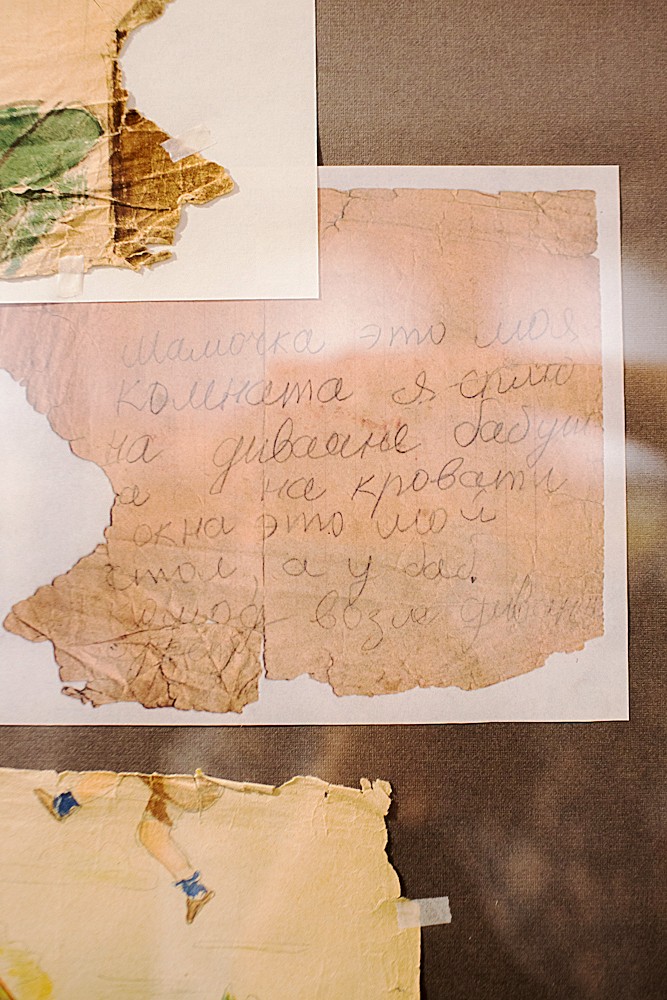 Мамочка это моя
комната я сплю
на диваине бабуш
а на кровати
окна это мой
стол, а у баб.
комод возле дивана